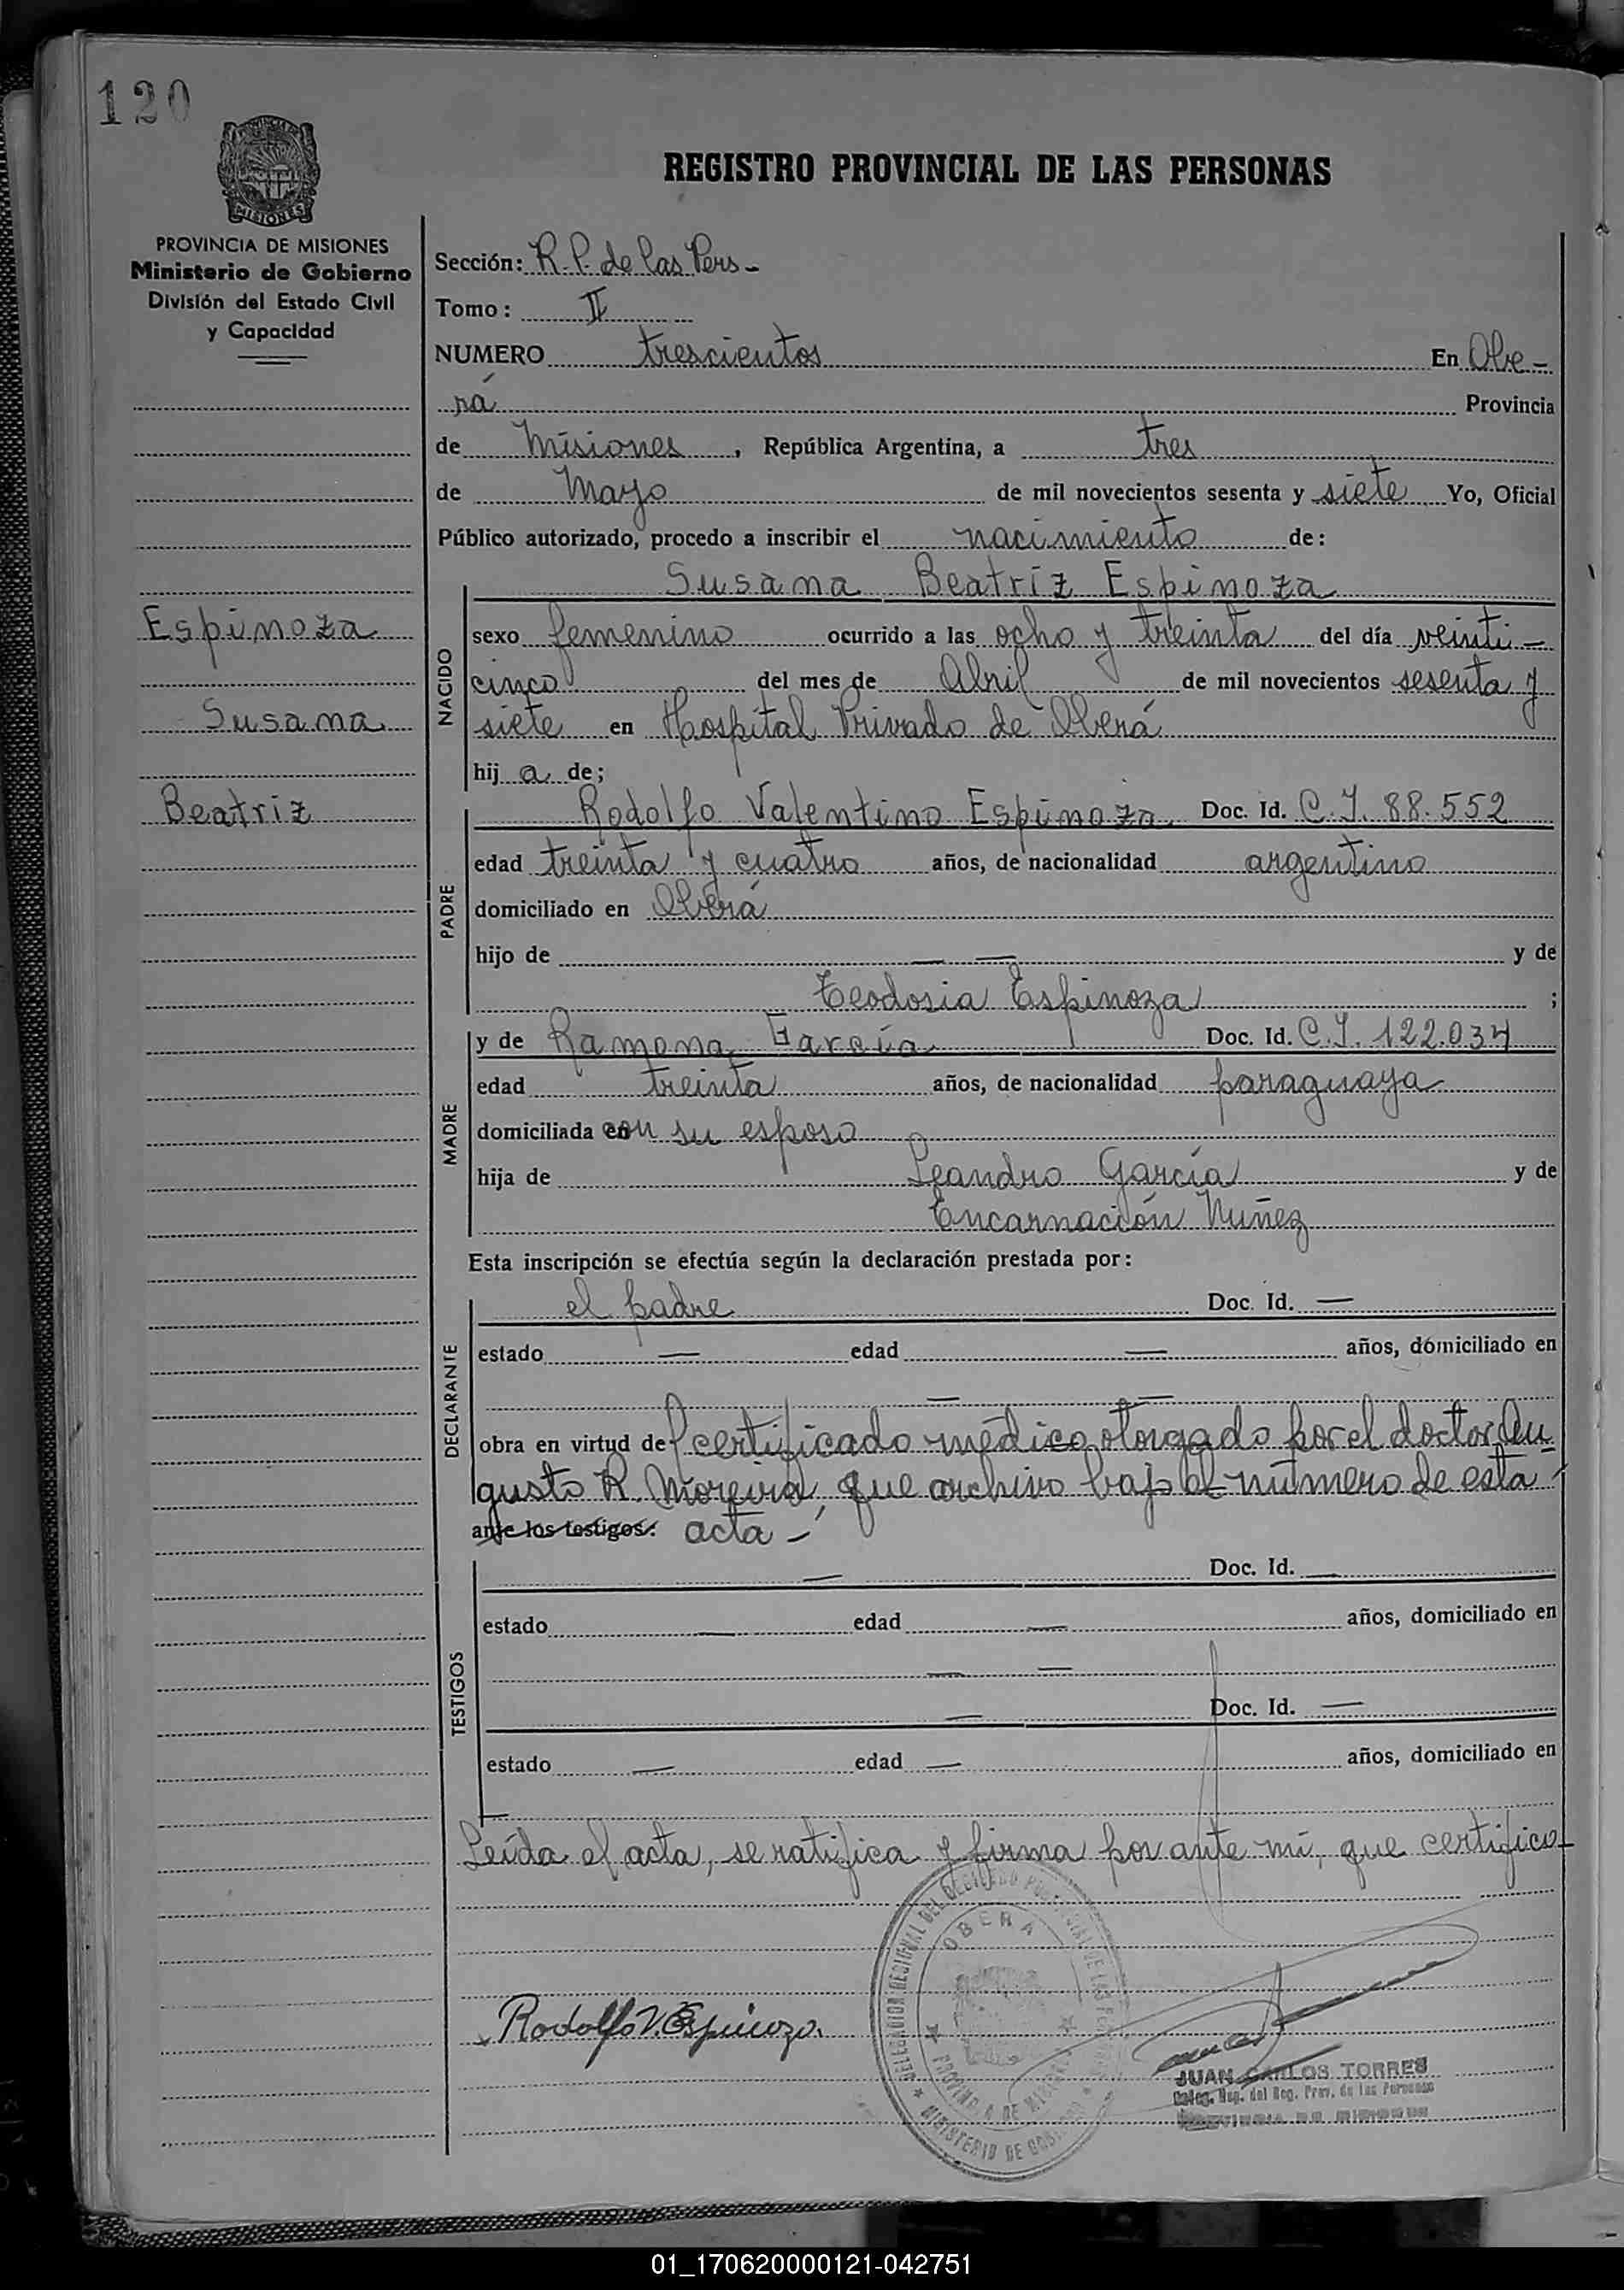 120
PROVINCIA DE MISIONES
Ministerio de Gobierno
División del Estado Civil
y Capacidad
Espinoza
Susana
Beatriz
REGISTRO PROVINCIAL DE LAS PERSONAS
Sección: R. P. de las Pers -
Tomo: II
NUMERO trescientos En Obe -
rá Provincia
de Misiones, República Argentina, a tres
de Mayo de mil novecientos sesenta y siete Yo, Oficial
Público autorizado, procedo a inscribir el nacimiento de:
Susana Beatriz Espinoza
NACIDO
sexo femenino ocurrido a las ocho y treinta del día veinti -
cinco del mes de Abril de mil novecientos sesenta y
siete en Hospital Privado de Oberá
hij a de;
PADRE
Rodolfo Valentino Espinoza Doc. Id. C. I. 88.552
edad treinta y cuatro años, de nacionalidad argentino
domiciliado en Oberá
hijo de — — y de
Teodosia Espinoza ;
MADRE
y de Ramona García Doc. Id. C. I. 122.034
edad treinta años, de nacionalidad paraguaya
domiciliada con su esposo
hija de Leandro García y de
Encarnación Nuñez
Esta inscripción se efectúa según la declaración prestada por:
DECLARANTE
el padre Doc. Id. —
estado — edad — años, domiciliado en
— —
obra en virtud de certificado médico otorgado por el doctor Au -
gusto R. Moreira, que archivo bajo el número de esta
ante los testigos: acta -
TESTIGOS
— Doc. Id. —
estado — edad — años, domiciliado en
— —
— Doc. Id. —
estado — edad — años, domiciliado en
—
Leída el acta, se ratifica y firma por ante mí, que certifico -
Rodolfo V. Espinoza.
OBERA
PROVINCIA DE MISIONES
MINISTERIO DE GOBIERNO
JUAN CARLOS TORRES
Deleg. Reg. del Reg. Prov. de las Personas
PROVINCIA DE MISIONES
01_170620000121-042751